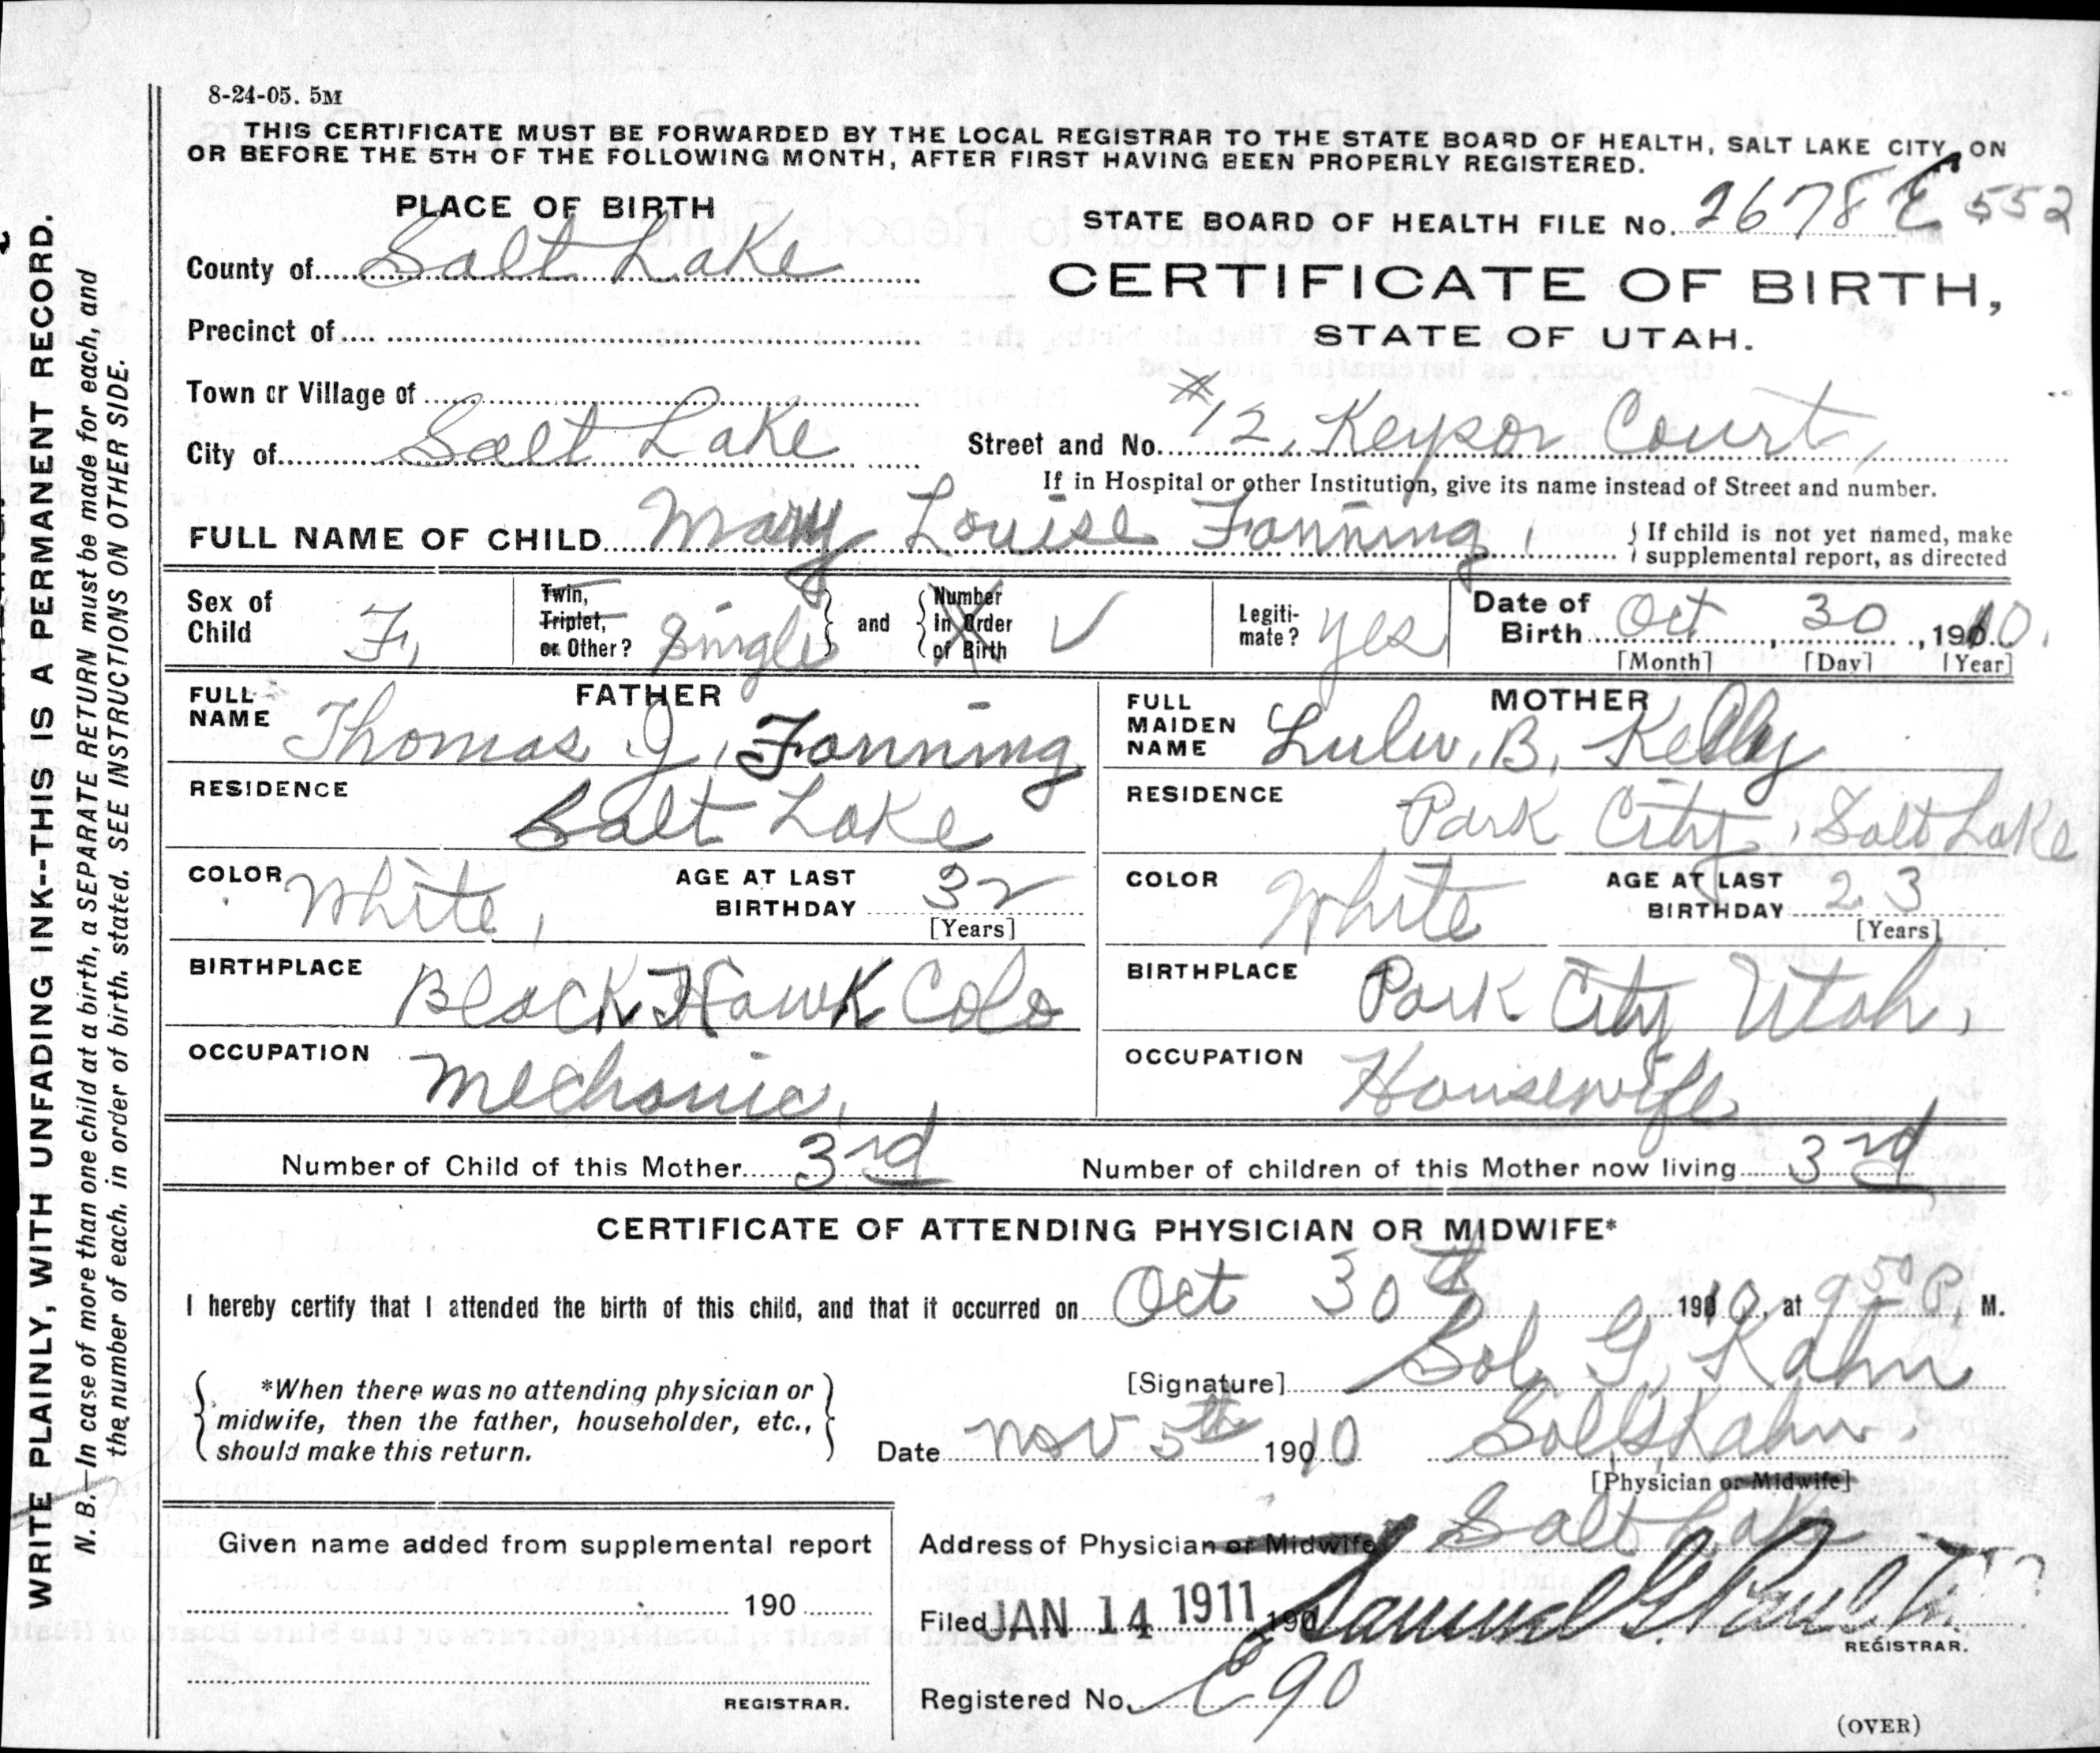 8-24-05. 5M
THIS CERTIFICATE MUST BE FORWARDED BY THE LOCAL REGISTRAR TO THE STATE BOARD OF HEALTH, SALT LAKE CITY, ON
OR BEFORE THE 5TH OF THE FOLLOWING MONTH, AFTER FIRST HAVING BEEN PROPERLY REGISTERED.
PLACE OF BIRTH
STATE BOARD OF HEALTH FILE No. 2678 E 552
County of Salt Lake
CERTIFICATE OF BIRTH,
Precinct of
STATE OF UTAH.
Town or Village of
City of Salt Lake
Street and No. #12, Keysor Court,
If in Hospital or other Institution, give its name instead of Street and number.
FULL NAME OF CHILD Mary Louise Fanning,
If child is not yet named, make
supplemental report, as directed
Sex of
Child F,
Twin,
Triplet,
or Other? Single
and
Number
in Order
of Birth ✓
Legiti-
mate? yes
Date of
Birth Oct, 30, 1910.
[Month] [Day] [Year]
FATHER
FULL
NAME Thomas J, Fanning
RESIDENCE
Salt Lake
COLOR White,
AGE AT LAST
BIRTHDAY 32
[Years]
BIRTHPLACE Black Hawk Colo
OCCUPATION Mechanic,
MOTHER
FULL
MAIDEN
NAME Lulu. B. Kelly
RESIDENCE
Park City, Salt Lake
COLOR White
AGE AT LAST
BIRTHDAY 23
[Years]
BIRTHPLACE Park City Utah,
OCCUPATION Housewife
Number of Child of this Mother 3rd
Number of children of this Mother now living 3rd
CERTIFICATE OF ATTENDING PHYSICIAN OR MIDWIFE*
I hereby certify that I attended the birth of this child, and that it occurred on Oct 30th 1910, at 9 50 P. M.
*When there was no attending physician or
midwife, then the father, householder, etc.,
should make this return.
[Signature] Sol. G. Kahn
Date Nov 5th 1910 Sol G Kahn.
[Physician or Midwife]
Given name added from supplemental report
190
REGISTRAR.
Address of Physician or Midwife Salt Lake
Filed JAN 14 1911 190 Samuel G. Paul
REGISTRAR.
Registered No. E90
(OVER)
WRITE PLAINLY, WITH UNFADING INK--THIS IS A PERMANENT RECORD.
N. B.—In case of more than one child at a birth, a SEPARATE RETURN must be made for each, and
the number of each, in order of birth, stated. SEE INSTRUCTIONS ON OTHER SIDE.